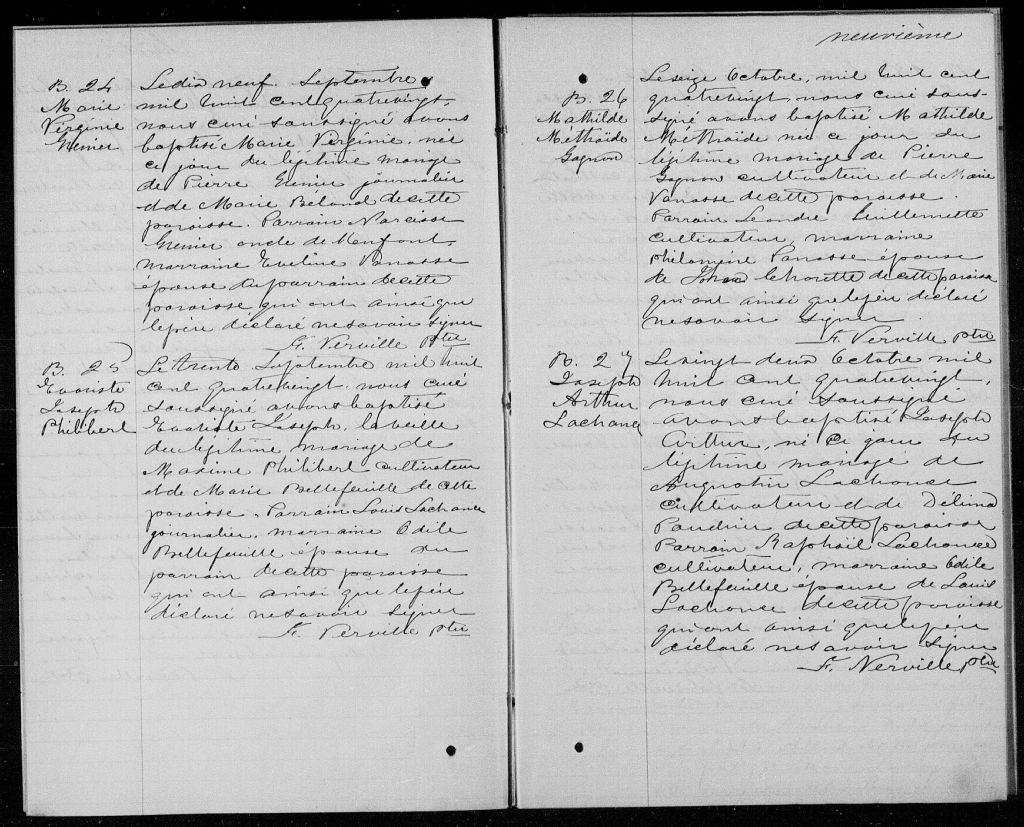 B. 24
Marie
Virginie
Grenier
Le dix neuf Septembre
mil huit cent quatrevingt,
nous curé soussigné avons
baptisé Marie Virginie, née
ce jour du légitime mariage
de Pierre Grenier journalier
et de Marie Béland de cette
paroisse. Parrain Narcisse
Grenier oncle de l'enfant,
marraine Eveline Vanasse
épouse du parrain de cette
paroisse qui ont ainsi que
le père déclaré ne savoir signer
F. Verville ptre
B. 25
Evariste
Joseph
Philibert
Le trente Septembre mil huit
cent quatrevingt nous curé
soussigné avons baptisé
Evariste Joseph, la veille
du légitime mariage de
Maxime Philibert cultivateur
et de Marie Bellefeuille de cette
paroisse. Parrain Louis Lachance
journalier, marraine Odile
Bellefeuille épouse du
parrain de cette paroisse
qui ont ainsi que le père
déclaré ne savoir signer
F. Verville ptre
neuvième
B. 26
Mathilde
Méthaïde
Gagnon
Le seize Octobre, mil huit cent
quatrevingt, nous curé sous-
signé avons baptisé Mathilde
Méthaïde née ce jour du
légitime mariage de Pierre
Gagnon cultivateur et de Marie
Vanasse de cette paroisse.
Parrain Léandre Guillemette
cultivateur, marraine
Philomène Vanasse épouse
de Lehoulte de cette paroisse
qui ont ainsi que le père déclaré
ne savoir signer.
F. Verville ptre
B. 27
Joseph
Arthur
Lachance
Le vingt deux Octobre mil
huit cent quatrevingt,
nous curé soussigné
avons baptisé Joseph
Arthur, né ce jour du
légitime mariage de
Augustin Lachance
cultivateur et de Délima
de cette paroisse
Parrain Raphaël Lachance
cultivateur, marraine Odile
Bellefeuille épouse de Louis
Lachance de cette paroisse
qui ont ainsi que le père
déclaré ne savoir signer
F. Verville ptre